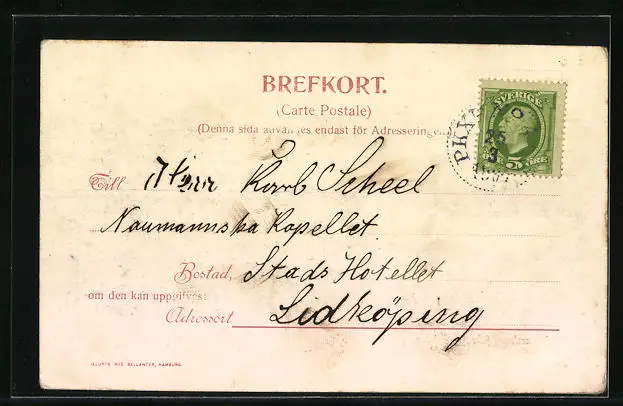 BREFKORT.
(Carte Postale)
(Denna sida användes endast för Adresseringen
SVERIGE
5 ÖRE
PKXP
25
3
Till Herr Karl Scheel
Naumannska Kapellet
Bostad, Stads Hotellet
om den kan uppgifves:
Adressort Lidköping
HAMBURG.